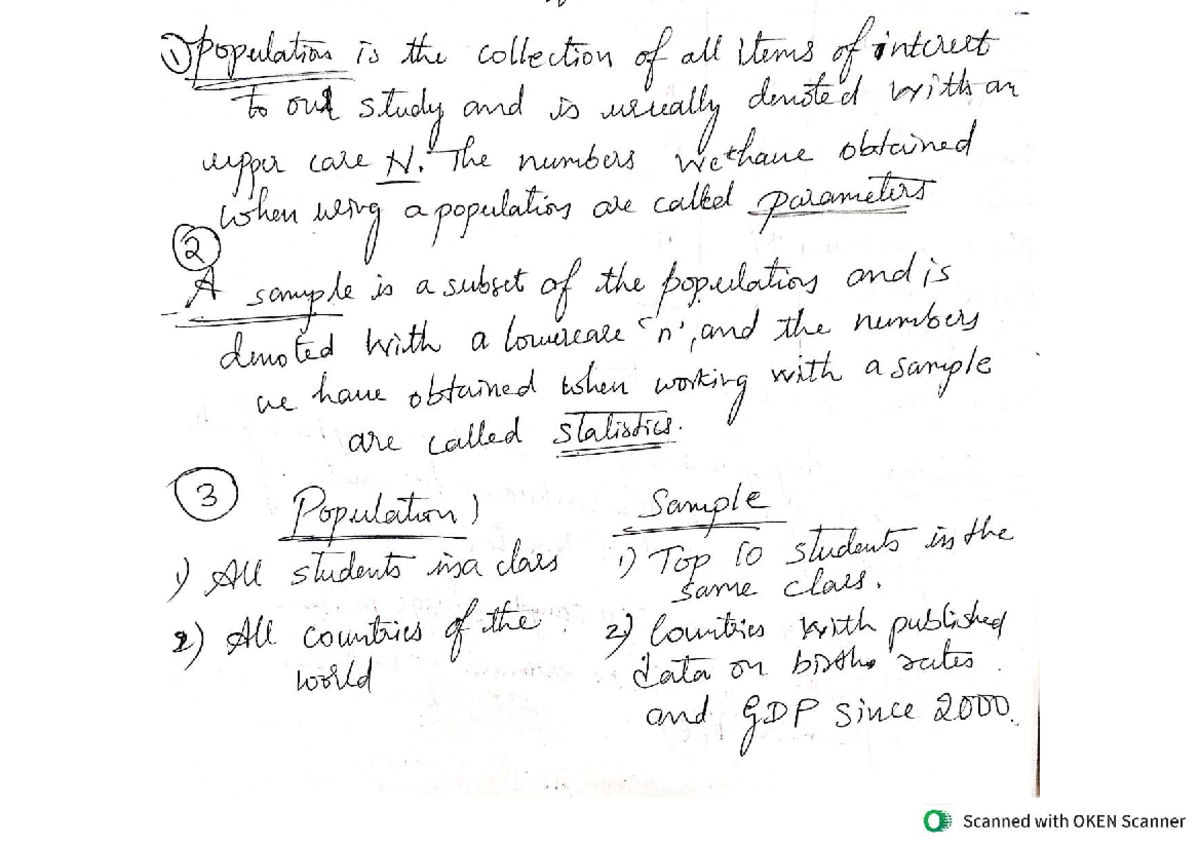 ① Population is the collection of all items of interest
to our study and is usually denoted with an
upper case N. The numbers we have obtained
when using a population are called parameters
②
A sample is a subset of the population and is
denoted with a lowercase 'n', and the numbers
we have obtained when working with a sample
are called statistics.
③ Population) Sample
1) All students in a class 1) Top 10 students in the
same class.
2) All countries of the 2) Countries with published
world data on births rates
and GDP since 2000.
Scanned with OKEN Scanner